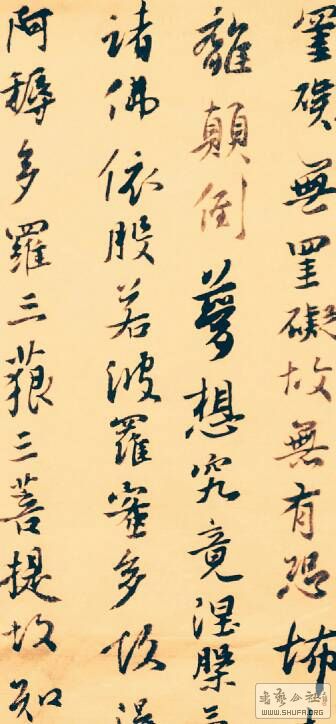 罣礙無罣礙故無有恐怖
離顛倒夢想究竟涅槃三
諸佛依般若波羅蜜多故得
阿耨多羅三藐三菩提故知
WWW.SHUFA.ORG